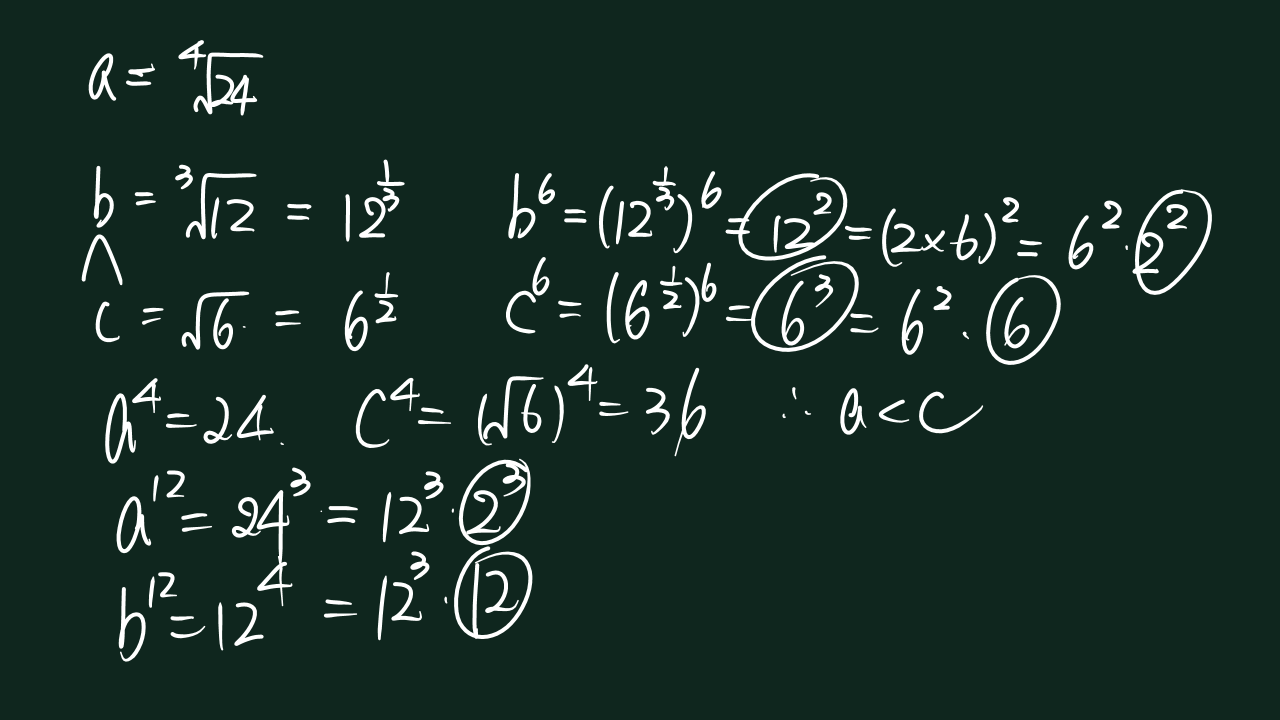 a = ⁴√24
b = ³√12 = 12^(1/3)  b⁶ = (12^(1/3))⁶ = 12² = (2×6)² = 6² · 2²
∧
c = √6 = 6^(1/2)  c⁶ = (6^(1/2))⁶ = 6³ = 6² · 6
a⁴ = 24  c⁴ = (√6)⁴ = 36  ∴ a < c
a¹² = 24³ = 12³ · 2³
b¹² = 12⁴ = 12³ · 12